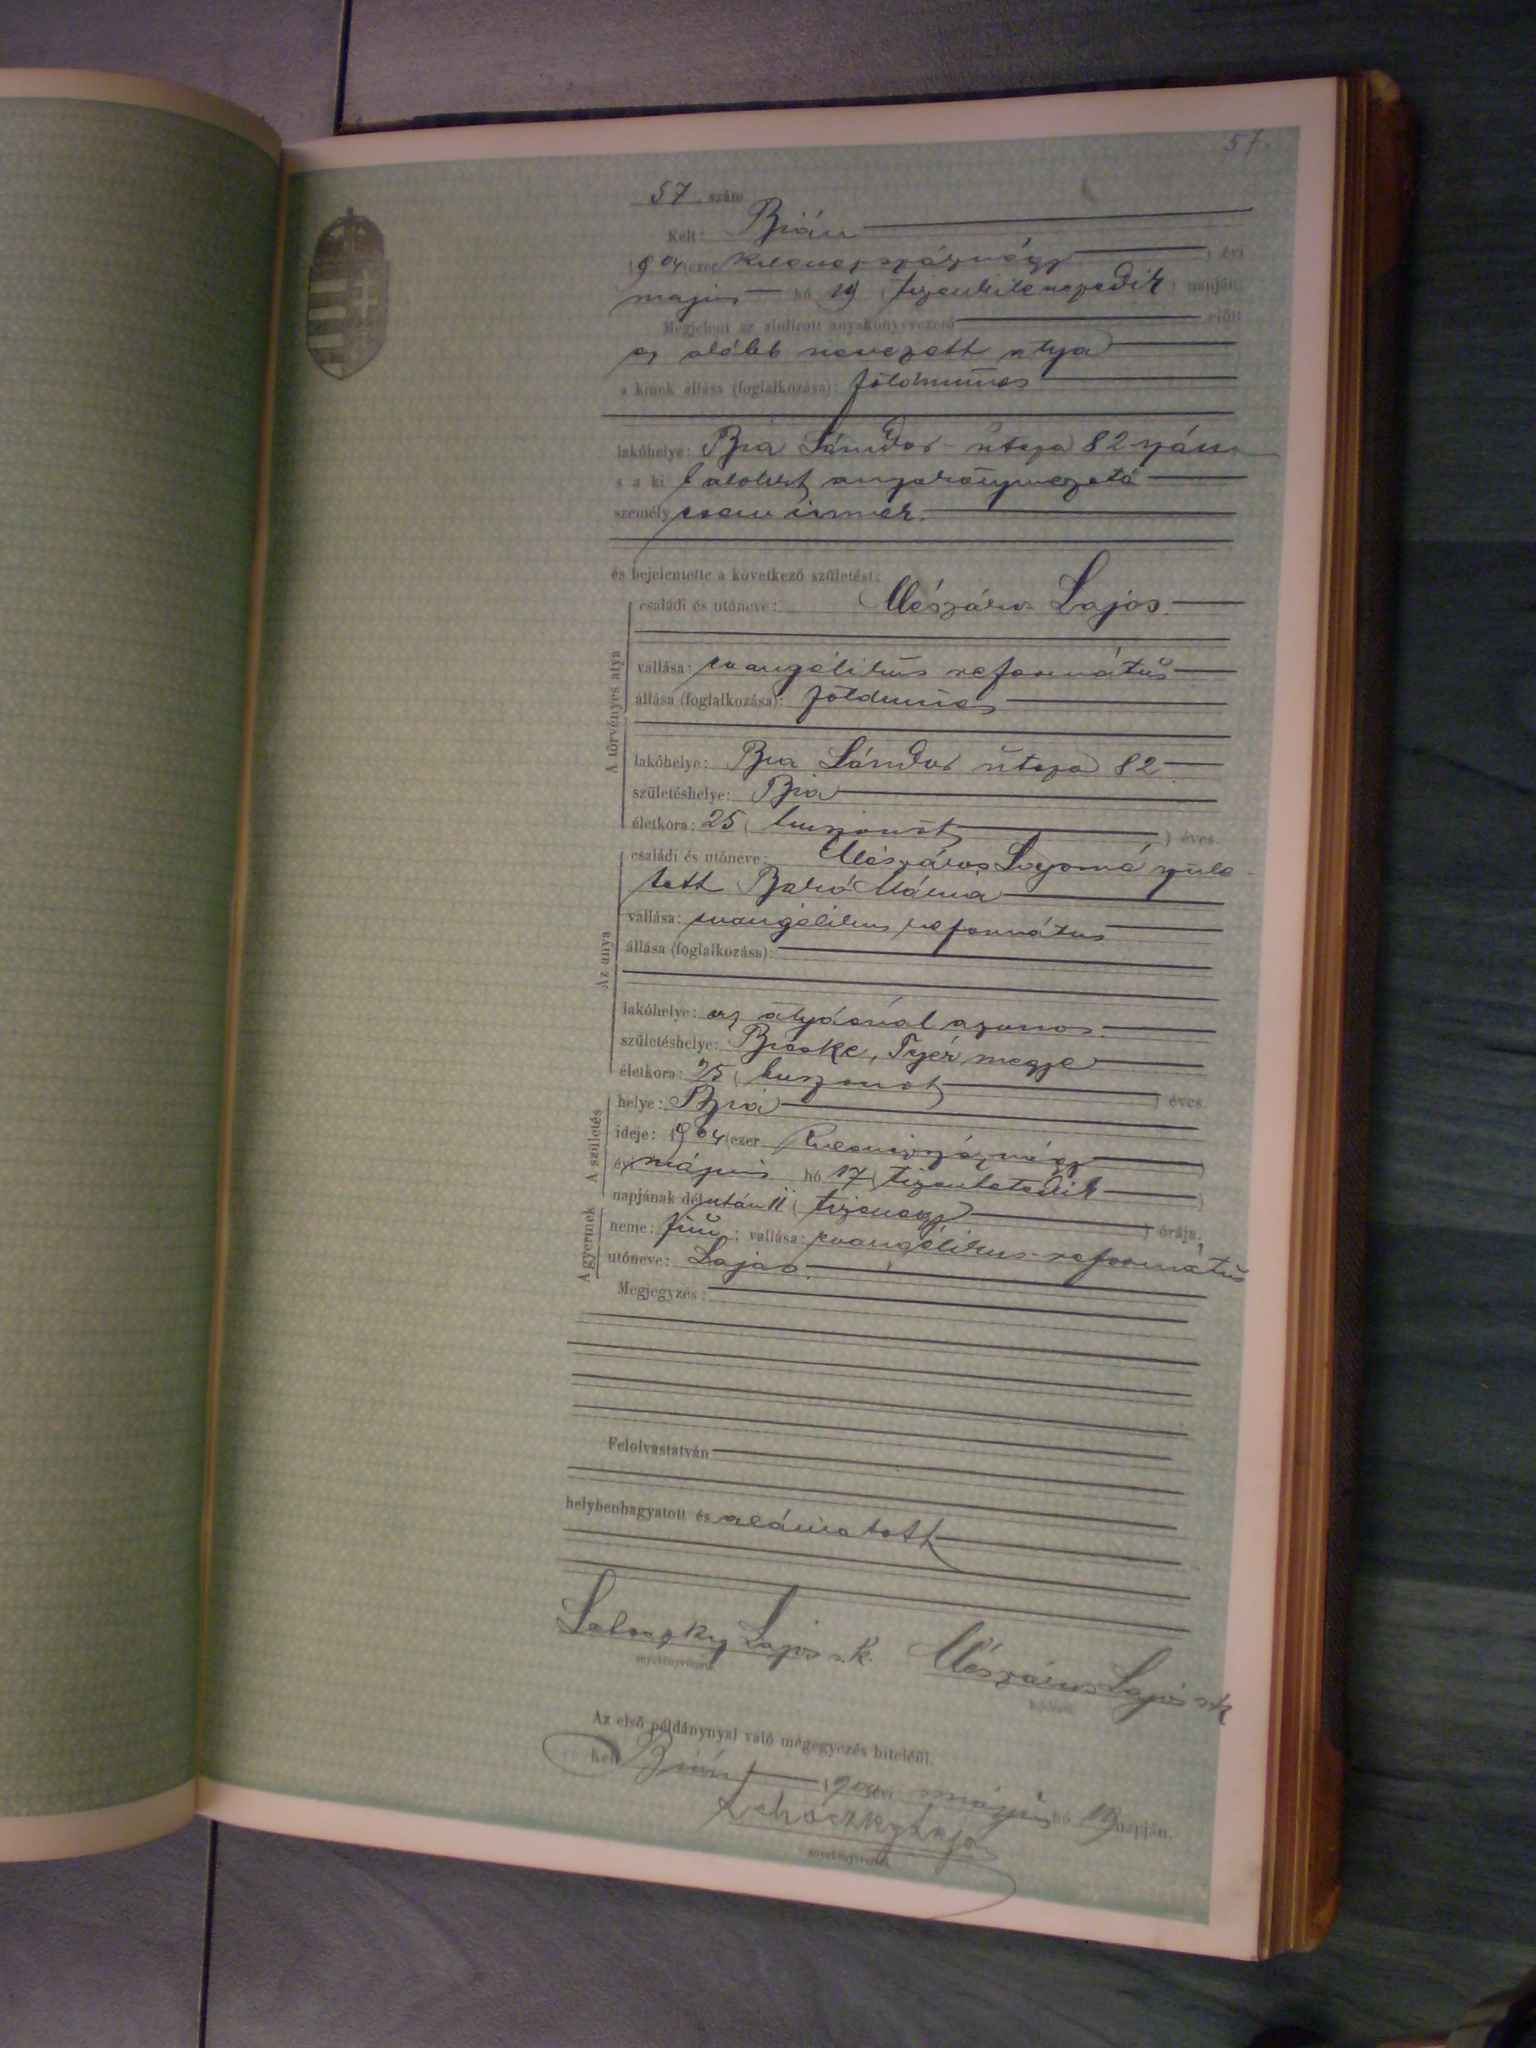 57.
57. szám
Kelt: Bián
1904 (ezer kilenczszáznégy) évi
május hó 19 (tizenkilenczedik) napján.
Megjelent az alulirott anyakönyvvezető előtt
az alább nevezett atya
a kinek állása (foglalkozása): földmüves
lakóhelye: Bia Sándor-utcza 82 szám
s a kit alolirt anyakönyvvezető
személyesen ismer.
és bejelentette a következő születést:
A törvényes atya
családi és utóneve: Mészáros Lajos.
vallása: evangélikus református
állása (foglalkozása): földmüves
lakóhelye: Bia Sándor utcza 82
születéshelye: Bia
életkora: 25 (huszonöt) éves.
Az anya
családi és utóneve: Mészáros Lajosné szüle-
tett Mária
vallása: evangélikus református
állása (foglalkozása):
lakóhelye: az atyáéval azonos.
születéshelye: Bicske, Fejér megye
életkora: 25 (huszonöt) éves.
A születés
helye: Bia
ideje: 1904 (ezer kilenczszáznégy)
évi május hó 17 (tizenhetedik)
napjának délután 11 (tizenegy) órája.
A gyermek
neme: fiú; vallása: evangélikus-református
utóneve: Lajos.
Megjegyzés:
Felolvastatván
helybenhagyatott és aláiratott
Lajos s.k. Mészáros Lajos s.k.
anyakönyvvezető bejelentő
Az első példánynyal való megegyezés hiteléül.
Kelt Bián 1904 évi május hó 19 napján.
Lajos
anyakönyvvezető